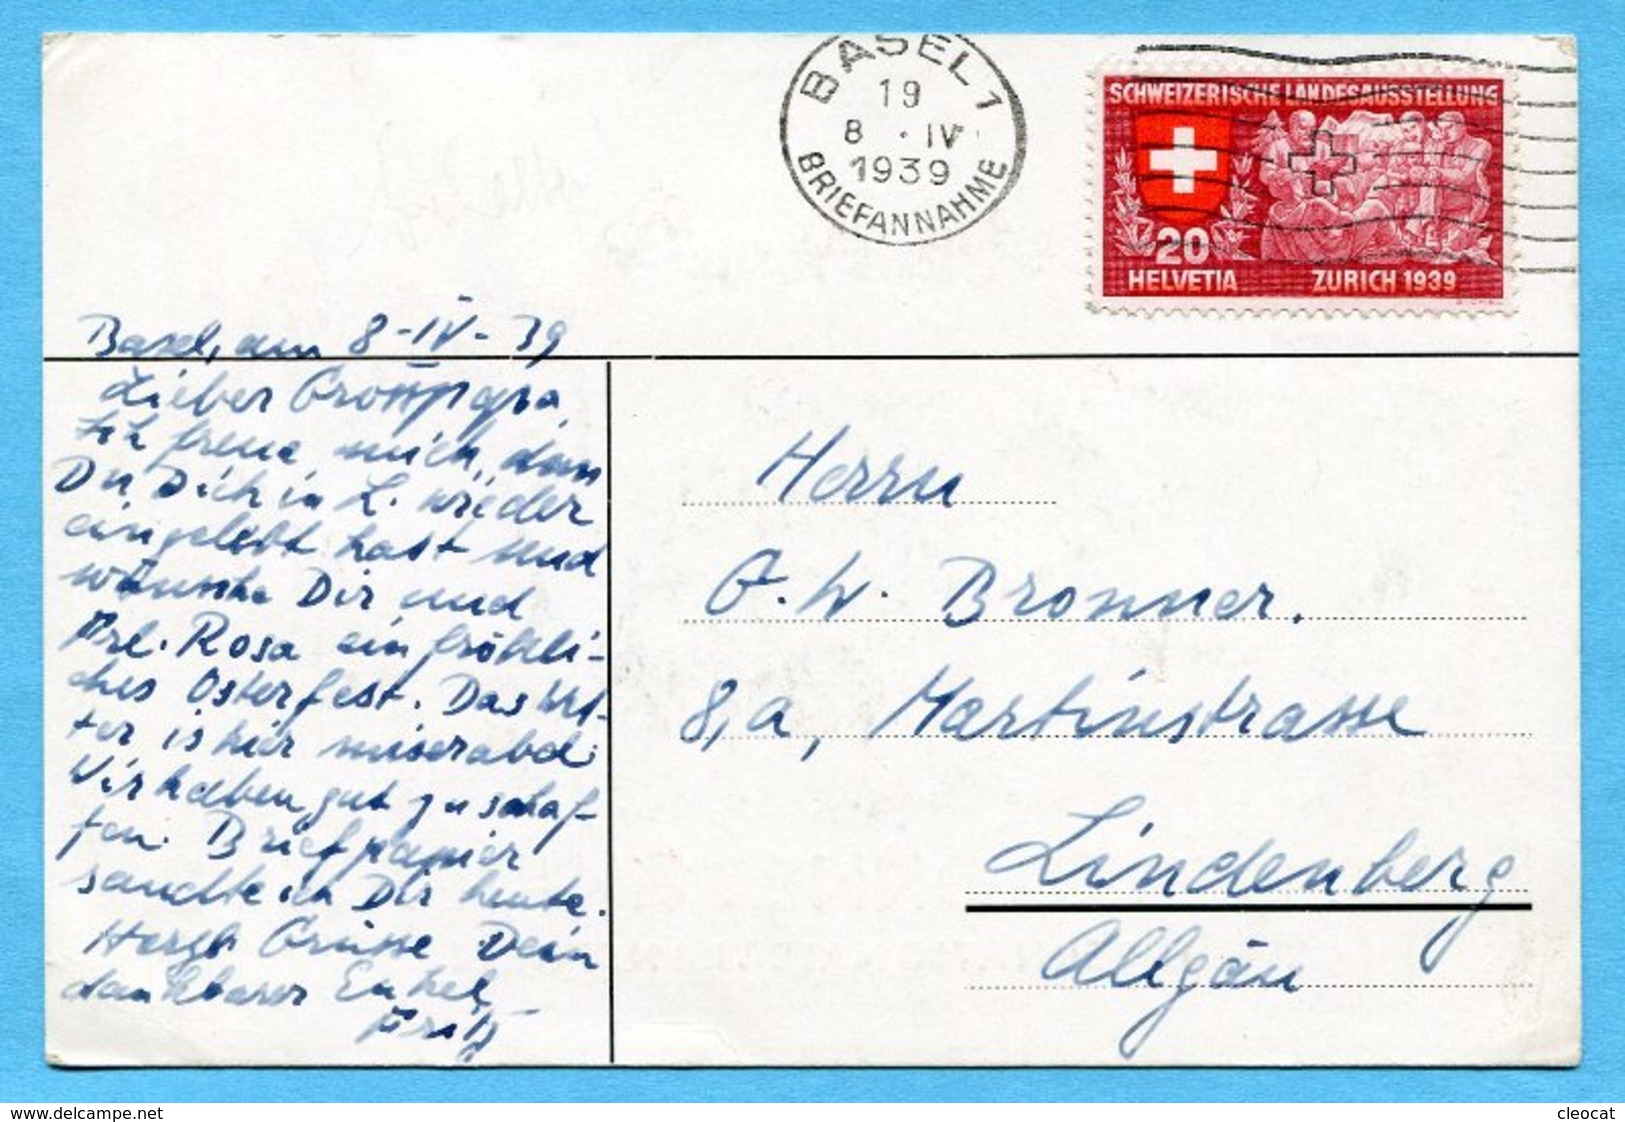 BASEL 1
19
8 · IV
1939
BRIEFANNAHME
SCHWEIZERISCHE LANDESAUSSTELLUNG
20
HELVETIA ZURICH 1939
Basel, am 8-IV-39
Lieber Grosspapa,
Ich freue mich, dass
Du Dich in L. wieder
eingelebt hast und
wünsche Dir und
Frl. Rosa ein fröhli-
ches Osterfest. Das Wet-
ter is hier miserabel.
Wir haben gut zu schaf-
fen. Briefpapier
sandte ich Dir heute.
Herzl. Grüsse Dein
dankbarer Enkel,
Fritz
Herrn
G. W. Bronner.
8,a, Martinstrasse
Lindenberg
Allgäu
www.delcampe.net
cleocat